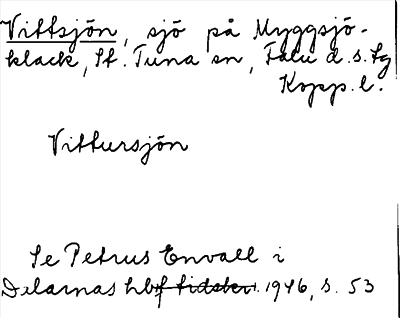 Vittsjön, sjö på Myggsjö-
klack, St. Tuna sn, Falu d.s. tg
Kopp. l.
Vittursjön
Se Petrus Envall i
Dalarnas hbf tidskr. 1946, s. 53